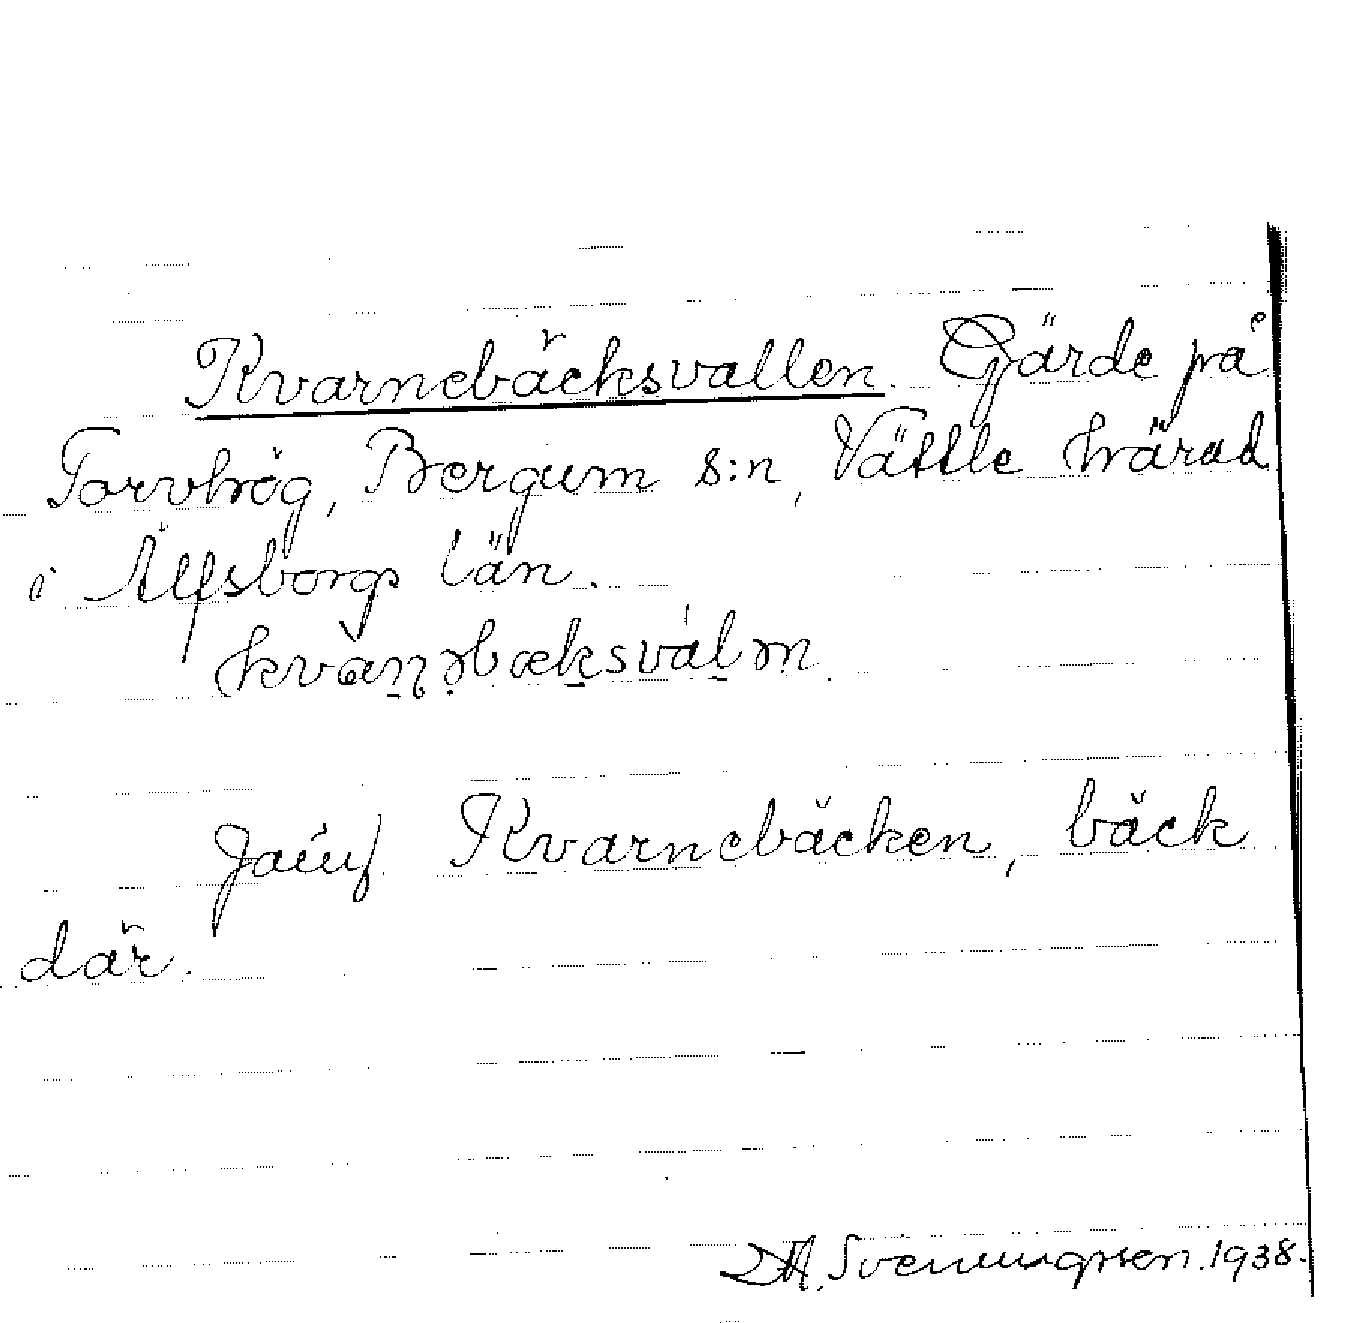 Kvarnebäcksvallen. Gärde på
Torvhög, Bergum s:n, Vättle härad
i Älfsborgs län.
Jämf Kvarnebäcken, bäck
där.
Svenungsson. 1938.